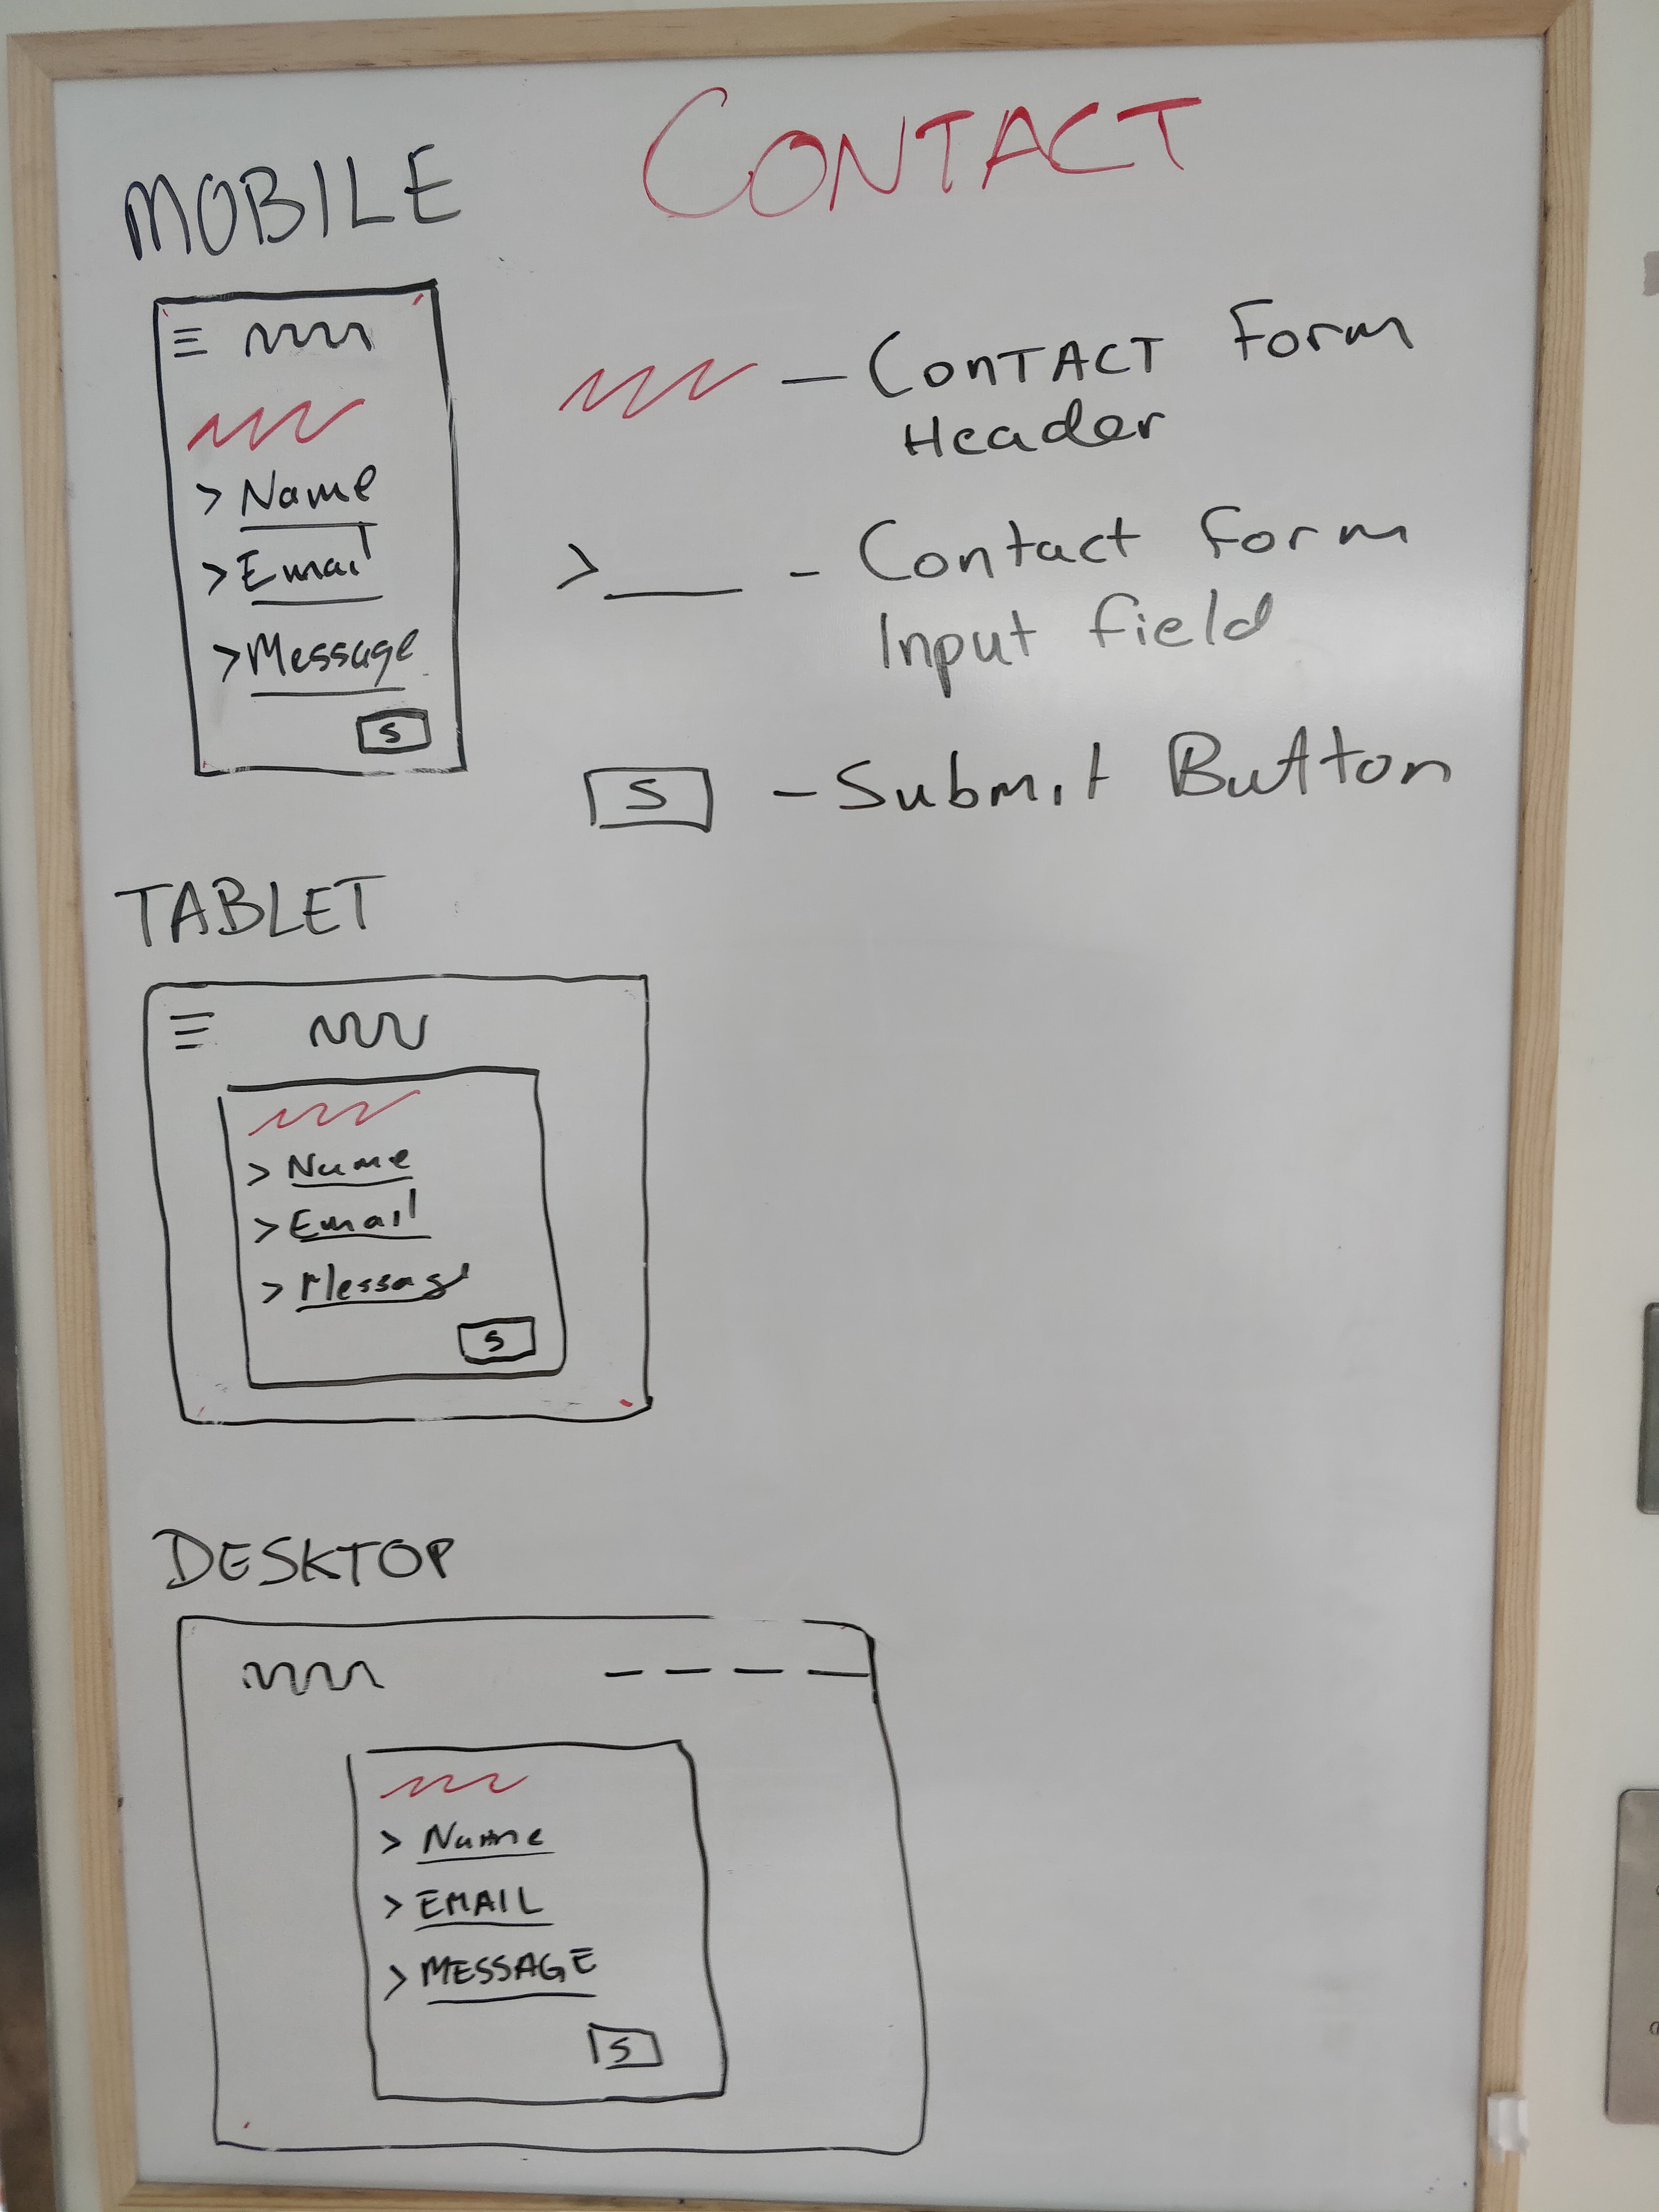 CONTACT
MOBILE
Name
Email
Message
S
- CONTACT Form
Header
>___ - Contact Form
Input field
S - Submit Button
TABLET
> Name
> Email
> Message
S
DESKTOP
> Name
> EMAIL
> MESSAGE
S